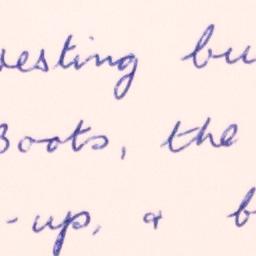 esting bu
Boots, the
-up, & b